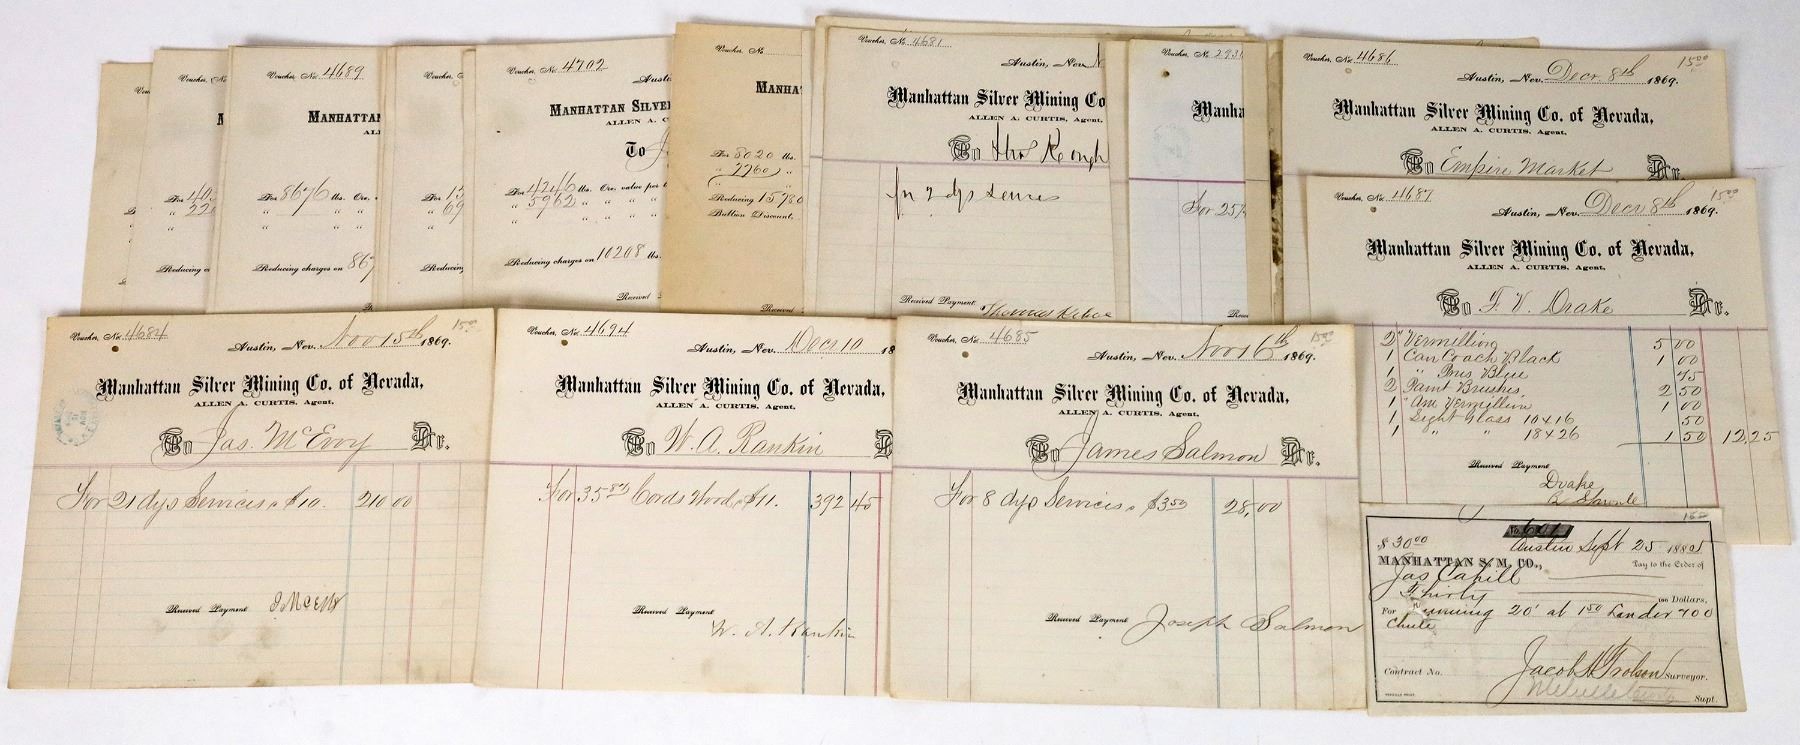 Voucher, No. 4689
MANHATTAN
For 8676 lbs. Ore,
Reducing charges on 867
Voucher, No. 4702
Austin
MANHATTAN SILVER
ALLEN A. C
To J
For 4246 lbs. Ore, value per
" 5962 " " " "
Reducing charges on 10208 lbs.
Received
Voucher, No.
MANHA
For 8020 lbs.
" 7760 "
Reducing 15780
Bullion Discount,
Voucher, No. 4681
Austin, Nev. N
Manhattan Silver Mining Co
ALLEN A. CURTIS, Agent.
To Thos Keough
for 2 dys Services
Received Payment
Thomas Kehoe
Voucher, No. 293
Manha
For 25
Voucher, No. 4686
15.00
Austin, Nev. Decr. 8th 1869.
Manhattan Silver Mining Co. of Nevada,
ALLEN A. CURTIS, Agent.
To Empire Market Dr.
Voucher, No. 4687
15.00
Austin, Nev. Decr 8th 1869.
Manhattan Silver Mining Co. of Nevada,
ALLEN A. CURTIS, Agent.
To F. V. Drake Dr.
2 " Vermillion 5 00
1 Can Coach Black 1 00
1 " Prus Blue 75
2 Paint Brushes 2 50
1 " Am Vermillion 1 00
1 Light Glass 10x16 50
1 " " 18x26 1 50 12,25
Received Payment
Drake
Voucher, No. 4684
15.00
Austin, Nev. Nov 15th 1869.
Manhattan Silver Mining Co. of Nevada,
ALLEN A. CURTIS, Agent.
To Jas. McEvoy Dr.
For 21 dys Services @ $10. 210 00
Received Payment J McEvoy
Voucher, No. 4694
Austin, Nev. Decr 10 18
Manhattan Silver Mining Co. of Nevada,
ALLEN A. CURTIS, Agent.
To W. A. Rankin D
For 35 Cords Wood @ $11. 392 45
Received Payment
W. A. Rankin
Voucher, No. 4685
15.00
Austin, Nev. Nov 16th 1869.
Manhattan Silver Mining Co. of Nevada,
ALLEN A. CURTIS, Agent.
To James Salmon Dr.
For 8 dys Services @ $3.50 28,00
Received Payment Joseph Salmon
No. 601
$ 30.00 Austin Sept 25 1885
MANHATTAN S. M. CO., Pay to the Order of
Jas Cahill
Thirty 100 Dollars,
For running 20' at 1.50 Lander 700
Chute
Contract No. Surveyor.
Supt.